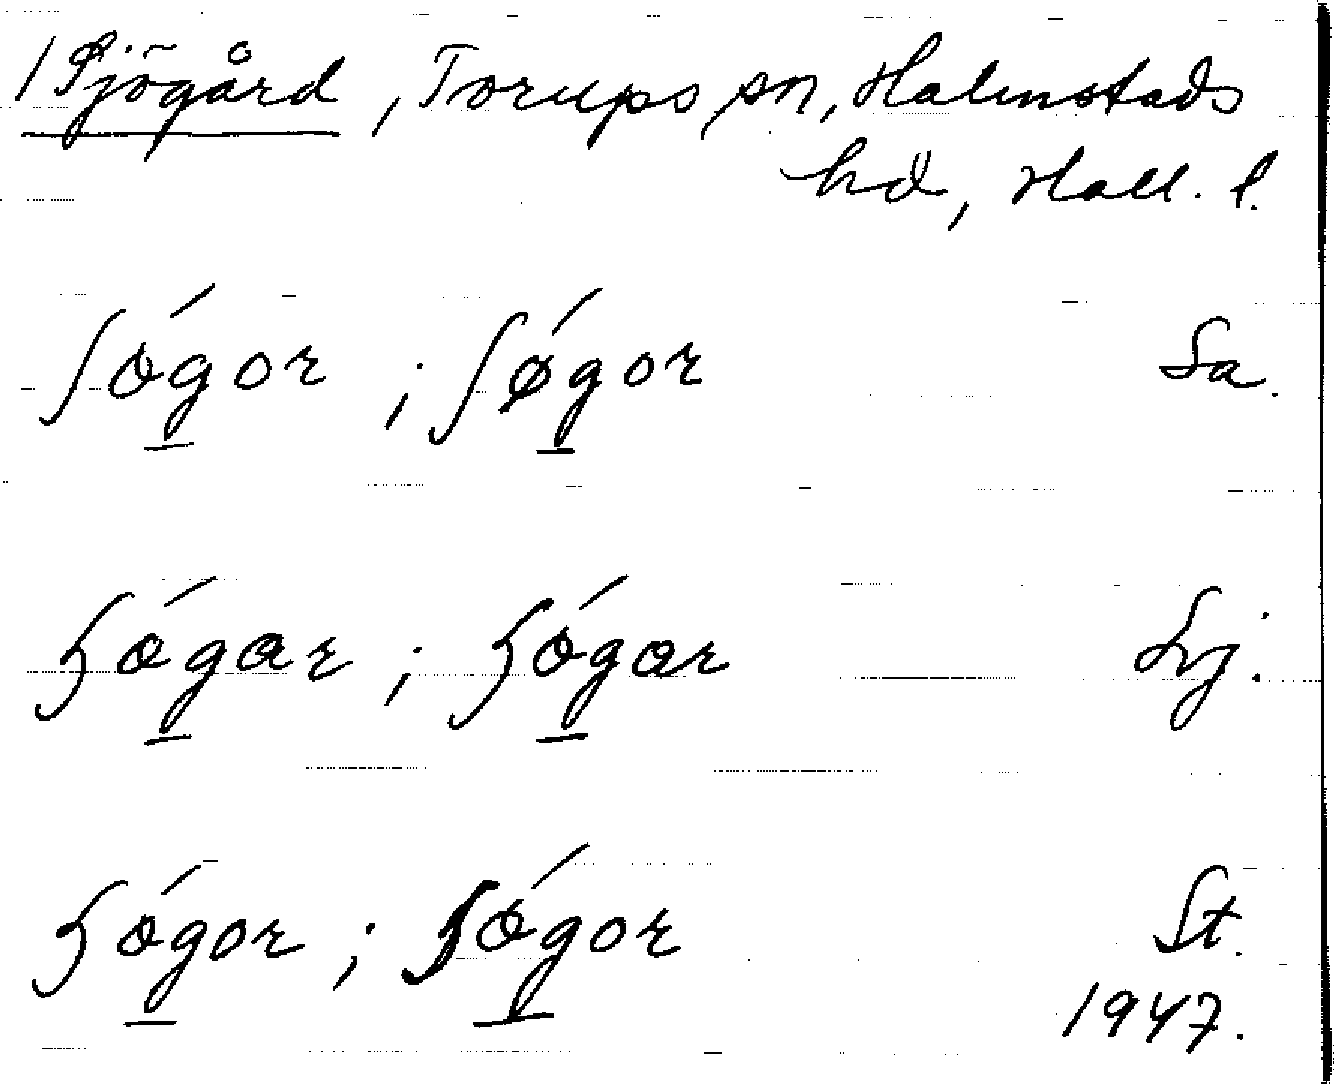 /Sjögård, Torups sn, Halmstads
hd, Hall. l.
ʃógor ; ʃǿgor Sa.
ʃógar ; ʃógar Lj.
ʃógor ; ʃógor St.
1947.